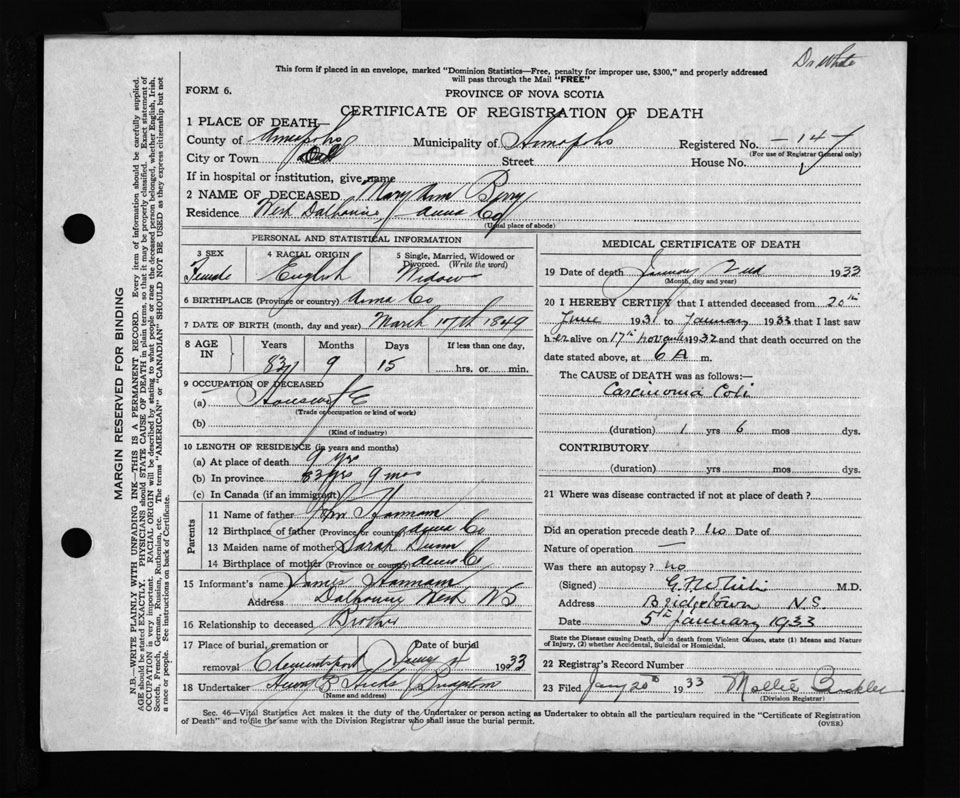 Dr White
This form if placed in an envelope, marked "Dominion Statistics—Free, penalty for improper use, $300," and properly addressed
will pass through the Mail "FREE"
FORM 6.
PROVINCE OF NOVA SCOTIA
CERTIFICATE OF REGISTRATION OF DEATH
1 PLACE OF DEATH—
County of Annapolis Municipality of Annapolis Registered No. —14—
(For use of Registrar General only)
City or Town Street House No.
If in hospital or institution, give name
2 NAME OF DECEASED Mary Ann Berry
Residence West Dalhousie, Anna Co
(Usual place of abode)
PERSONAL AND STATISTICAL INFORMATION
3 SEX Female
4 RACIAL ORIGIN English
5 Single, Married, Widowed or Divorced. (Write the word) Widow
6 BIRTHPLACE (Province or country) Anna Co
7 DATE OF BIRTH (month, day and year) March 17th 1849
8 AGE IN Years 83 Months 9 Days 15 If less than one day, hrs. or min.
9 OCCUPATION OF DECEASED
(a) Housewife
(Trade or occupation or kind of work)
(b)
(Kind of industry)
10 LENGTH OF RESIDENCE (in years and months)
(a) At place of death 9 yrs
(b) In province 83 yrs 9 mos
(c) In Canada (if an immigrant)
Parents
11 Name of father Hannam
12 Birthplace of father (Province or country) Anna Co
13 Maiden name of mother Sarah Dunn
14 Birthplace of mother (Province or country) Anna Co
15 Informant's name James Hannam
Address Dalhousie West NS
16 Relationship to deceased Brother
17 Place of burial, cremation or Date of burial
removal Clementsport Jany 4 1933
18 Undertaker Hicks Bridgetown
(Name and address)
MEDICAL CERTIFICATE OF DEATH
19 Date of death January 2nd 1933
(Month, day and year)
20 I HEREBY CERTIFY that I attended deceased from 20th
June 1931 to January 1933 that I last saw
her alive on 17th November 1932 and that death occurred on the
date stated above, at 6 A m.
The CAUSE OF DEATH was as follows:—
Carcinoma Coli
(duration) 1 yrs 6 mos dys.
CONTRIBUTORY
(duration) yrs mos dys.
21 Where was disease contracted if not at place of death?
Did an operation precede death? No Date of
Nature of operation —
Was there an autopsy? no
(Signed) M.D.
Address Bridgetown N.S
Date 5th January 1933
State the Disease causing Death, or in death from Violent Causes, state (1) Means and Nature
of Injury, (2) whether Accidental, Suicidal or Homicidal.
22 Registrar's Record Number
23 Filed Jany 20th 1933 Mollie Buckler
(Division Registrar)
Sec. 46—Vital Statistics Act makes it the duty of the Undertaker or person acting as Undertaker to obtain all the particulars required in the "Certificate of Registration
of Death" and to file the same with the Division Registrar who shall issue the burial permit.
(OVER)
MARGIN RESERVED FOR BINDING
N.B.—WRITE PLAINLY WITH UNFADING INK—THIS IS A PERMANENT RECORD. Every item of information should be carefully supplied.
AGE should be stated EXACTLY. PHYSICIANS should STATE CAUSE OF DEATH in plain terms, so that it may be properly classified. Exact statement of
OCCUPATION is very important. RACIAL ORIGIN will be described by stating to what people or race the deceased person belonged, whether English, Irish,
Scotch, French, German, Russian, Ruthenian, etc. The terms "AMERICAN" or "CANADIAN" SHOULD NOT BE USED as they express citizenship but not
a race or people. See instructions on back of Certificate.